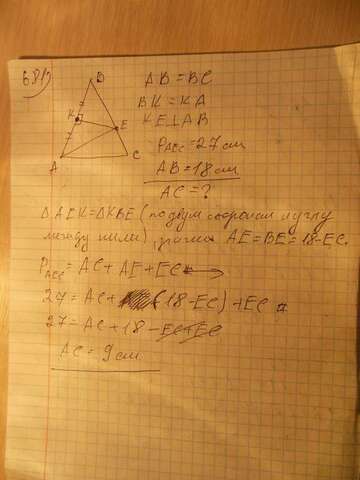 681)
B
K
E
A
C
AB = BC
BK = KA
KE⊥AB
P AEC = 27 см
AB = 18 см
AC = ?
ΔAEK = ΔKBE (по двум сторонам и углу
между ними) значит AE = BE = 18-EC.
P AEC = AC + AE + EC
27 = AC + (18 - EC) + EC
27 = AC + 18 - EC + EC
AC = 9 см